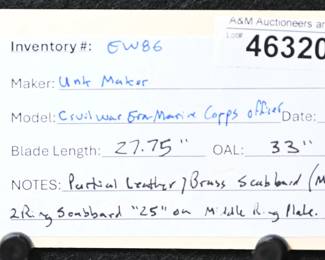 A&M Auctioneers an
Lot# 46320
Inventory #: EW86
Maker: Unk Maker
Model: Civil War Era Marine Corps officer Date:
Blade Length: 27.75" OAL: 33"
NOTES: Partial Leather / Brass Scabbard (M
2 Ring Scabbard "25" on Middle Ring Plate.